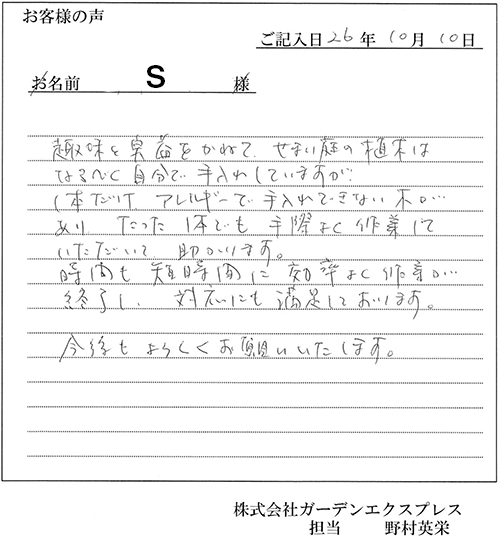 お客様の声
ご記入日 26年 10月 10日
お名前 S 様
趣味と実益をかねて、せまい庭の植木は
なるべく自分で手入れしていますが、
1本だけ アレルギーで手入れできない木が
あり たった1本でも 手際よく作業して
いただいて 助かります。
時間も 短時間に 効率よく作業が
終了し、対応にも満足しております。
今後もよろしくお願いいたします。
株式会社ガーデンエクスプレス
担当 野村英栄